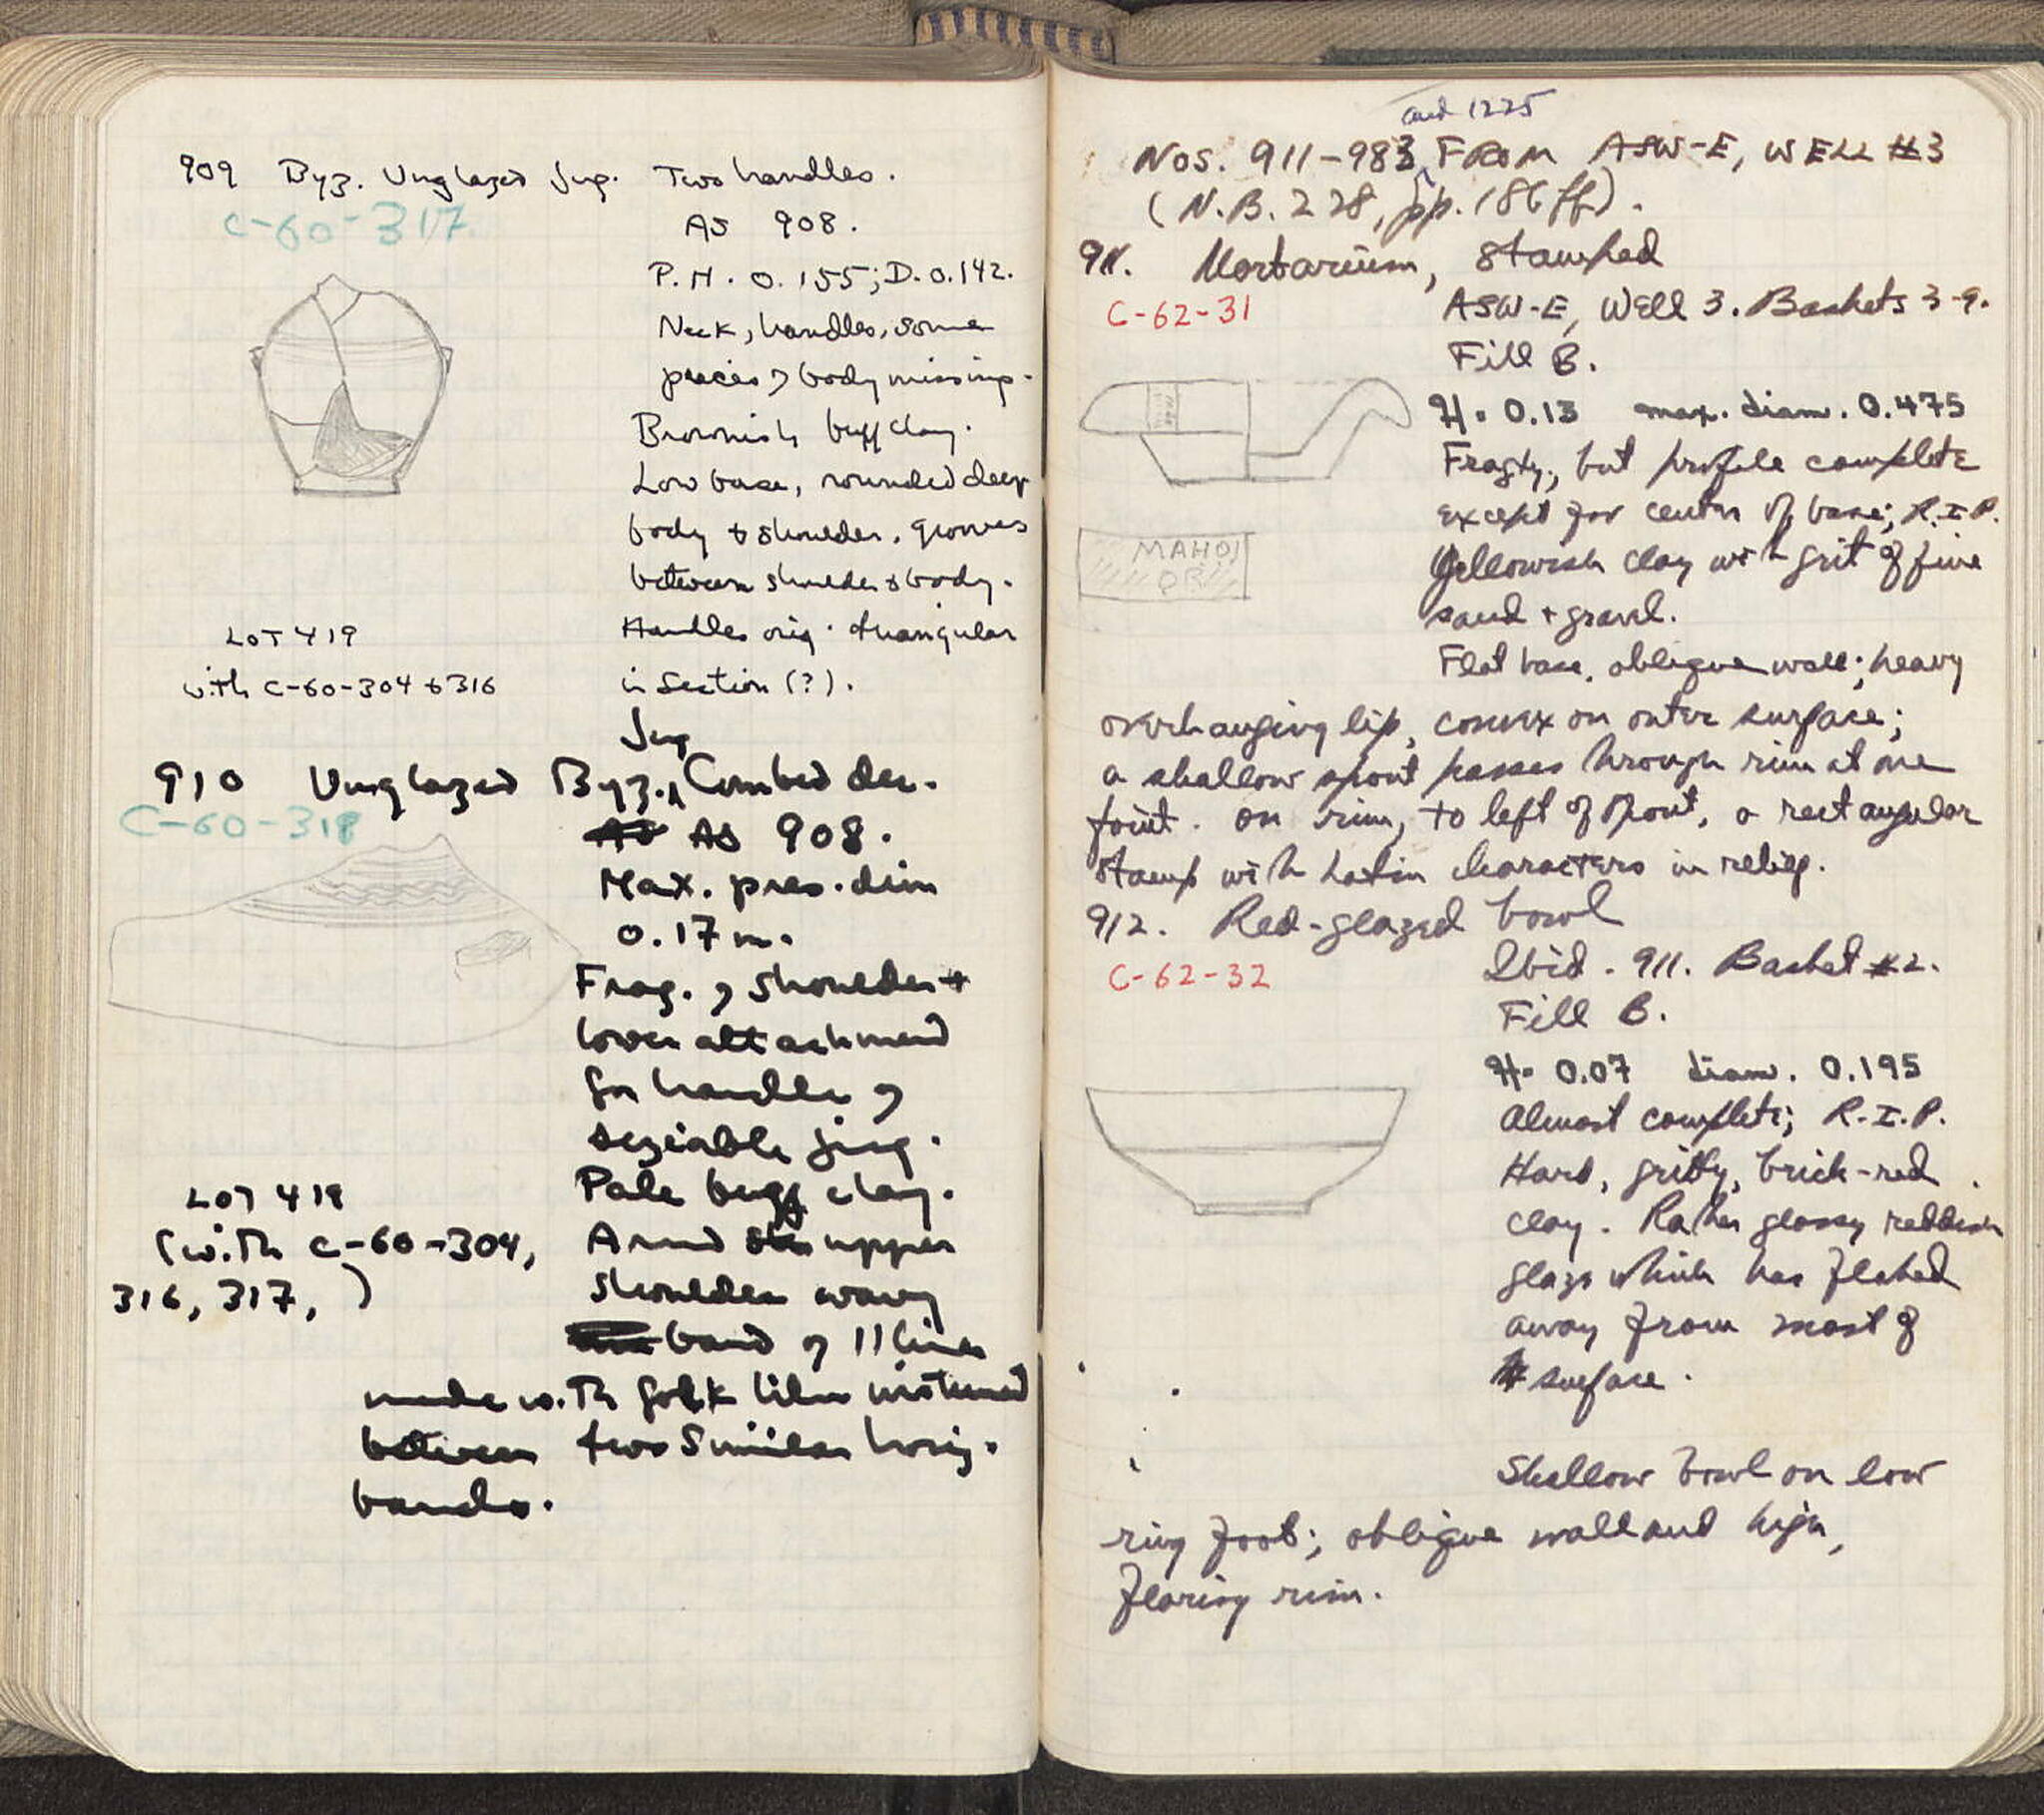 909 Byz. Unglazed Jug. Two handles.
C-60-317
As 908.
P.H. 0.155; D. 0.142.
Neck, handles, some
pieces of body missing.
Brownish buff clay.
Low base, rounded deep
body & shoulder. Grooves
between shoulder & body.
Handles orig. triangular
in section (?).
LOT 419
with C-60-304 & 316
Jug
910 Unglazed Byz. Combed dec.
C-60-318
As 908.
Max. pres. dim
0.17 m.
Frag. of shoulder +
lower attachment
for handle of
sizeable jug.
Pale buff clay.
Around upper
shoulder wavy
band of 11 lines
made with fork like instrument
between two similar horiz.
bands.
LOT 419
(with C-60-304,
316, 317, )
and 1225
Nos. 911-983 FROM ASW-E, WELL #3
(N.B. 228, pp. 186 ff).
911. Mortarium, stamped
C-62-31
ASW-E, Well 3. Baskets 3-9.
Fill B.
H. 0.13 max. diam. 0.475
Fragty, but profile complete
except for center of base; R.I.P.
Yellowish clay with grit of fine
sand + gravel.
Flat base, oblique wall; heavy
overhanging lip, convex on outer surface;
a shallow spout passes through rim at one
point. On rim, to left of spout, a rectangular
stamp with Latin characters in relief.
MAHOI
OR
912. Red-glazed bowl
C-62-32
Ibid. 911. Basket #2.
Fill B.
H. 0.07 diam. 0.195
Almost complete; R.I.P.
Hard, gritty, brick-red
clay. Rather glossy reddish
glaze which has flaked
away from most of
surface.
Shallow bowl on low
ring foot; oblique wall and high,
flaring rim.